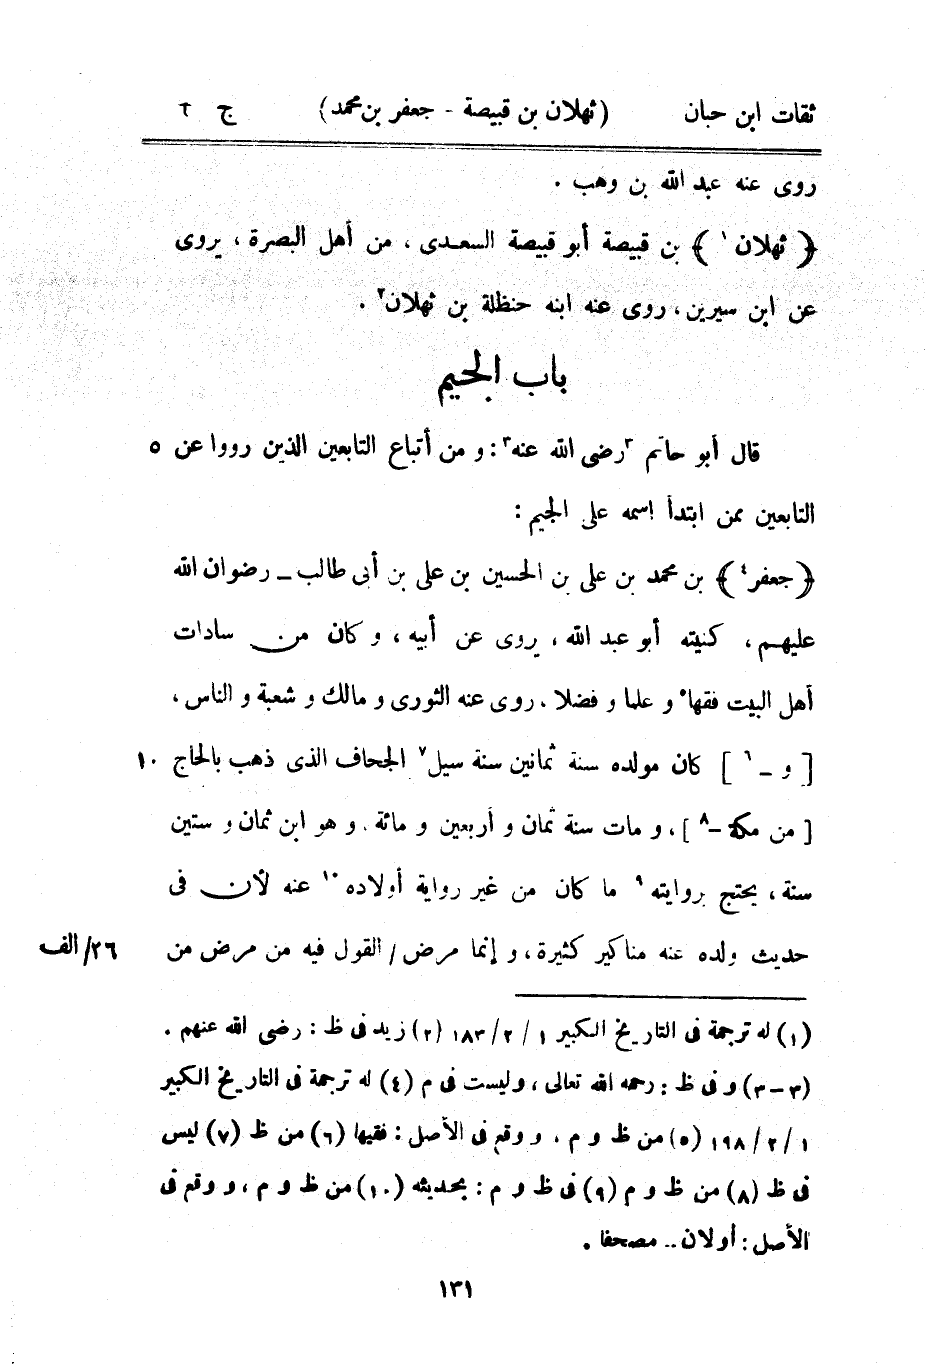 ثقات ابن حبان (ثهلان بن قبيصة - جعفر بن محمد) ج ٦
روى عنه عبد الله بن وهب .
﴿ ثهلان ١ ﴾ بن قبيصة أبو قبيصة السعدى ، من أهل البصرة ، يروى
عن ابن سيرين ، روى عنه ابنه حنظلة بن ثهلان ٢ .
باب الجيم
قال أبو حاتم ٣ رضى الله عنه ٣ : و من أتباع التابعين الذين رووا عن ٥
التابعين ممن ابتدأ اسمه على الجيم :
﴿ جعفر ٤ ﴾ بن محمد بن على بن الحسين بن على بن أبى طالب ــ رضوان الله
عليهم ، كنيته أبو عبد الله ، يروى عن أبيه ، و كان من سادات
أهل البيت فقها ٥ و علما و فضلا ، روى عنه الثورى و مالك و شعبة و الناس ،
[ و ــ ٦ ] كان مولده سنة ثمانين سنة سيل ٧ الجحاف الذى ذهب بالحاج ١٠
[ من مكة ــ ٨ ] ، و مات سنة ثمان و أربعين و مائة ، و هو ابن ثمان و ستين
سنة ، يحتج بروايته ٩ ما كان من غير رواية أولاده ١٠ عنه لأن فى
حديث ولده عنه مناكير كثيرة ، و إنما مرض / القول فيه من مرض من ٢٦/ الف
(١) له ترجمة فى التاريخ الكبير ١ / ٢ / ١٨٣ (٢) زيد فى ظ : رضى الله عنهم .
(٣-٣) و فى ظ : رحمه الله تعالى ، وليست فى م (٤) له ترجمة فى التاريخ الكبير
١ / ٢ / ١٩٨ (٥) من ظ و م ، و وقع فى الأصل : فقيها (٦) من ظ (٧) ليس
فى ظ (٨) من ظ و م (٩) فى ظ و م : بحديثه (١٠) من ظ و م ، و وقع فى
الأصل : أولان .. مصحفا .
١٣١